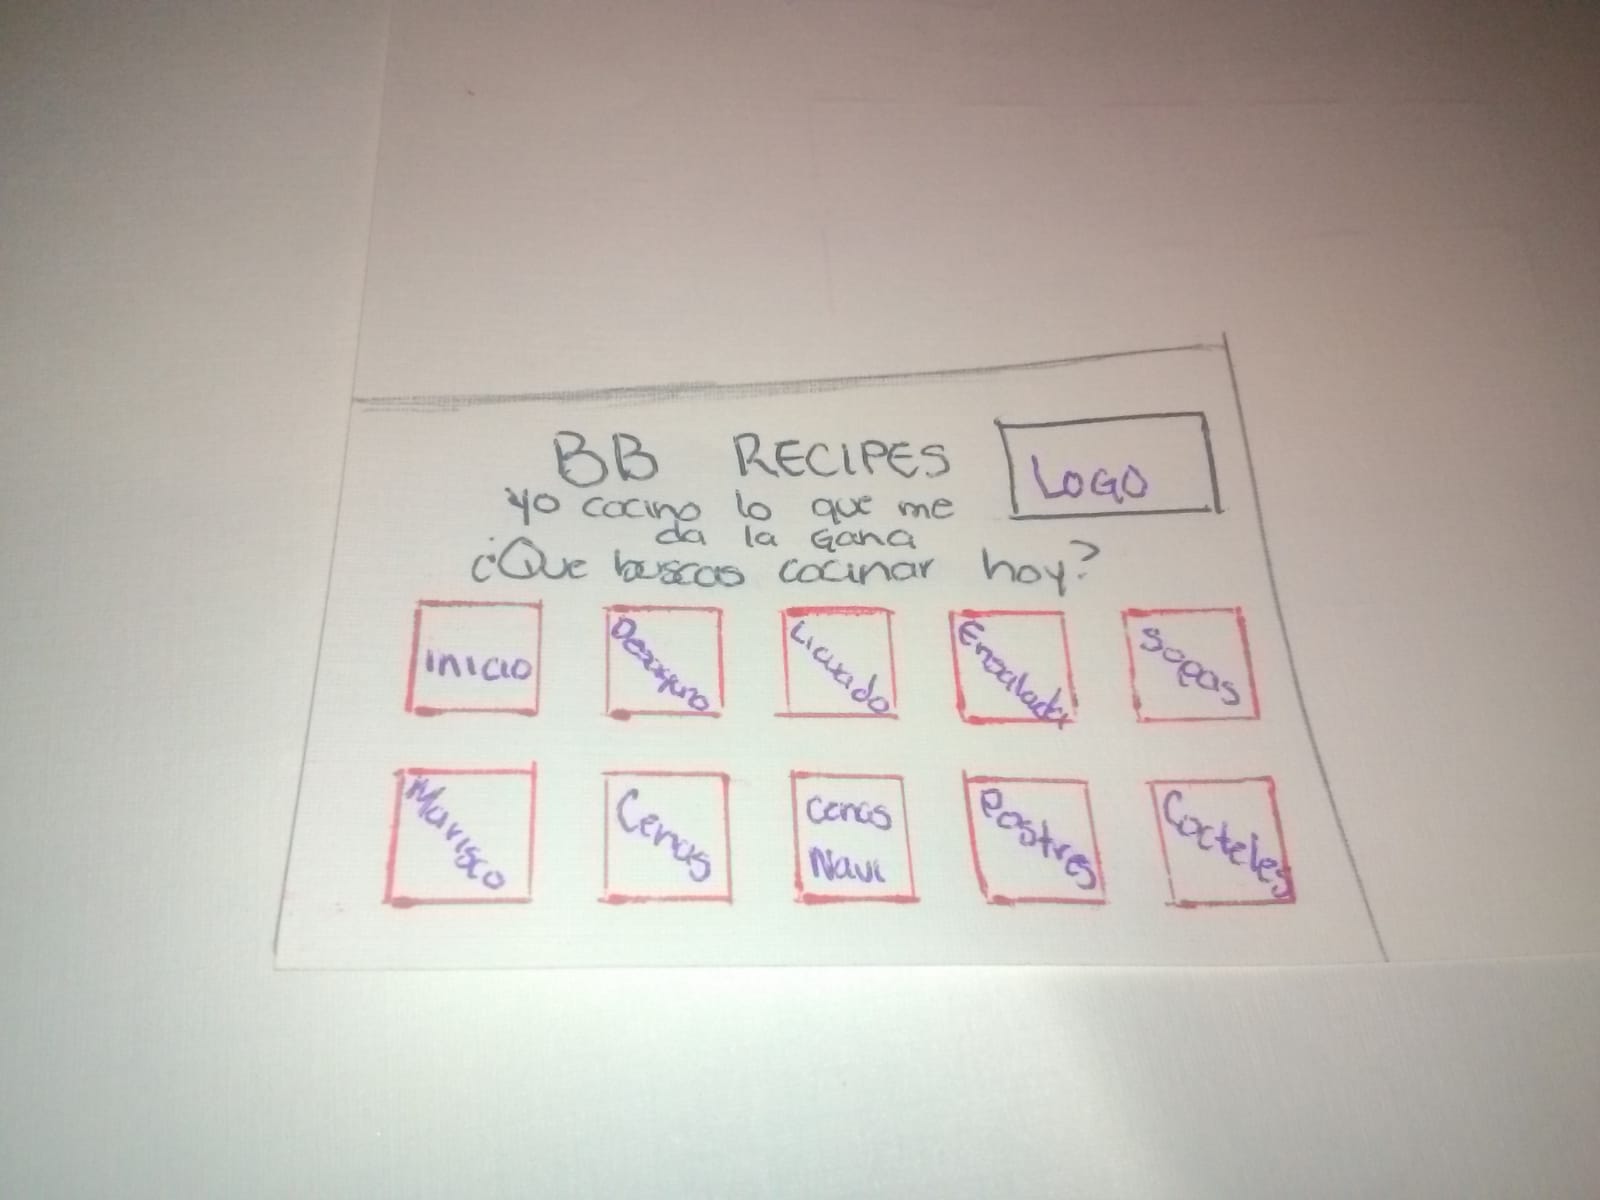 BB RECIPES
LOGO
yo cocino lo que me
da la gana
¿Que buscas cocinar hoy?
inicio
Desayuno
Licuado
Ensalada
Sopas
Marisco
Cenas
Cenas
Navi
Postres
Cocteles